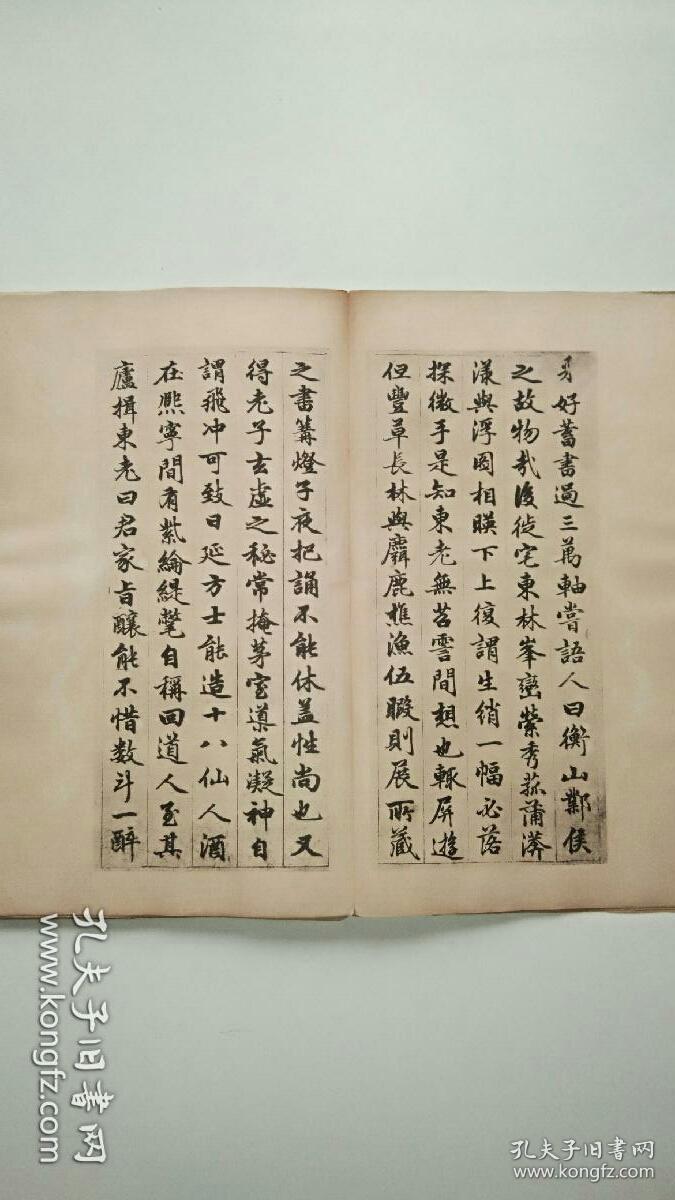 好蓄書過三萬軸嘗語人曰衡山鄴侯
之故物哉後徙宅東林峯巒縈秀菰蒲漭
漾與浮圖相暎下上復謂生綃一幅必落
探微手是知東老無苕霅間想也輒屏遊
但豐草長林與麝鹿樵漁伍暇則展所藏
之書篝燈子夜把誦不能休盖性尚也又
得老子玄虛之秘常掩茅室導氣凝神自
謂飛冲可致日延方士能造十八仙人酒
在熈寧間有紫綸緹氅自稱回道人至其
廬揖東老曰君家旨釀能不惜数斗一醉
孔夫子旧书网
www.kongfz.com
孔夫子旧书网
www.kongfz.com